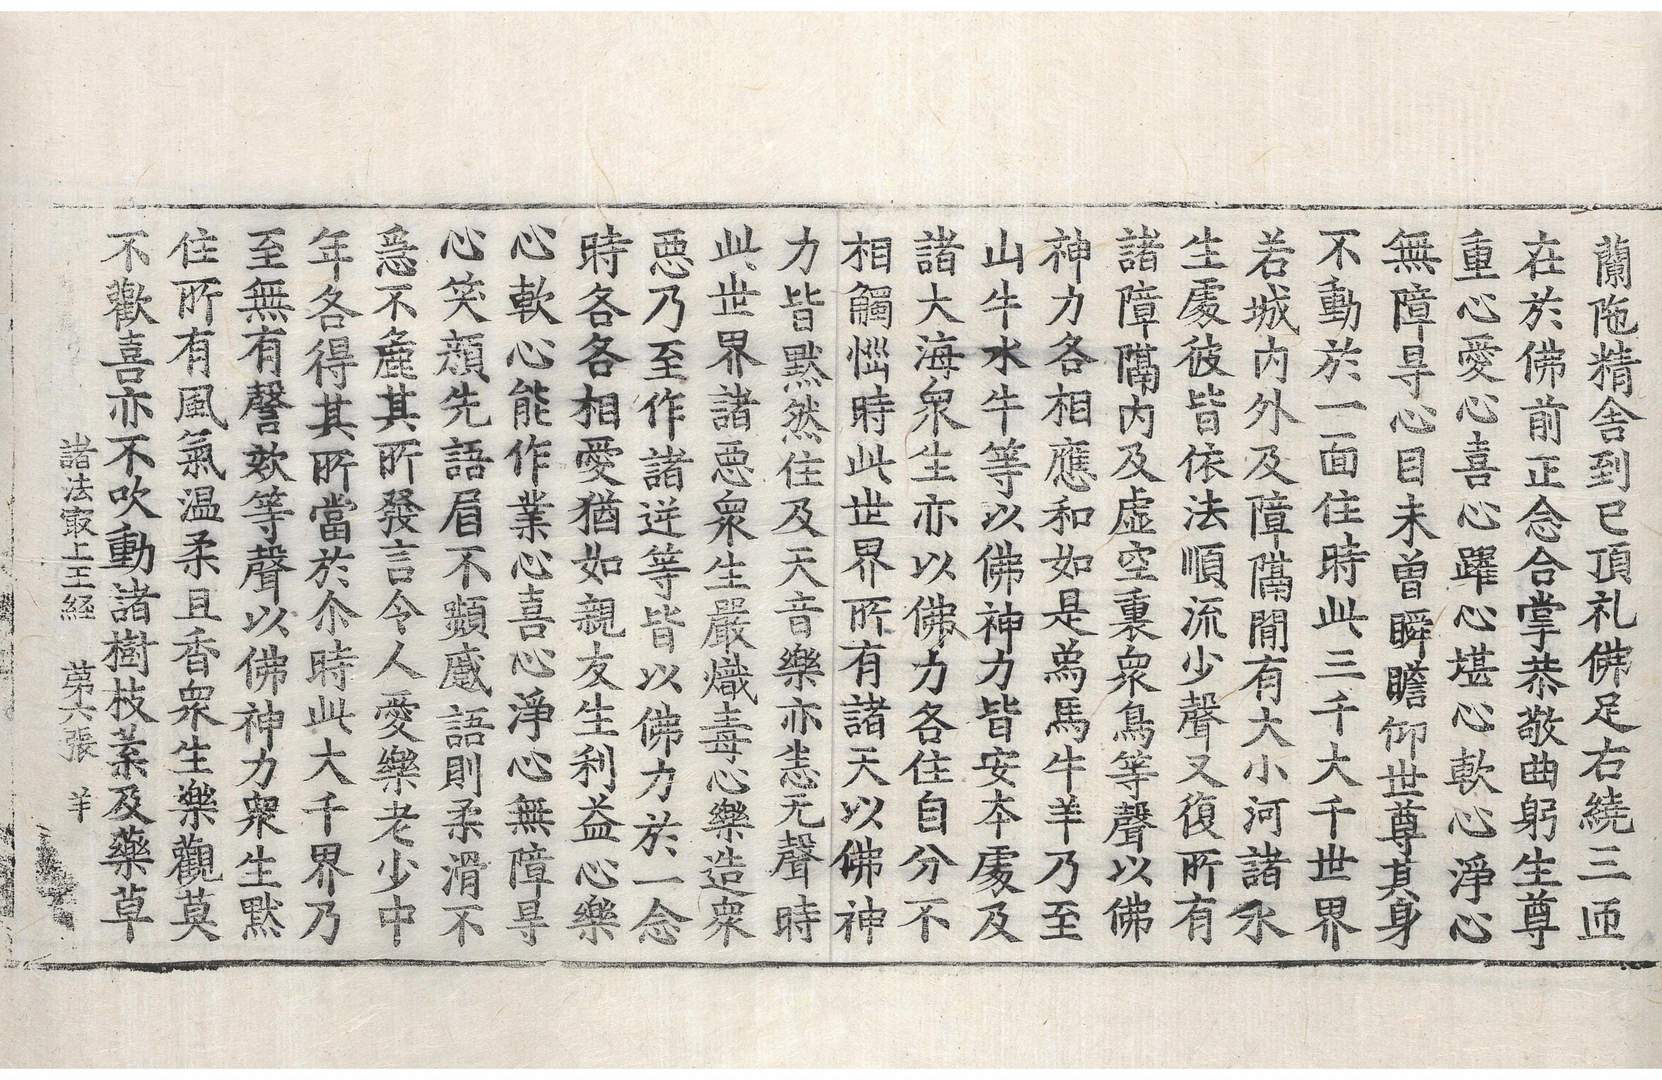 蘭陁精舍到已頂礼佛足右繞三匝
在於佛前正念合掌恭敬曲躬生尊
重心愛心喜心躍心堪心軟心淨心
無障㝵心目未曾瞬瞻仰世尊其身
不動於一面住時此三千大千世界
若城内外及障隔閒有大小河諸水
生處彼皆依法順流少聲又復所有
諸障隔内及虛空裏衆鳥等聲以佛
神力各相應和如是爲馬牛羊乃至
山牛水牛等以佛神力皆安本處及
諸大海衆生亦以佛力各住自分不
相觸惱時此世界所有諸天以佛神
力皆默然住及天音樂亦恙无聲時
此世界諸惡衆生嚴熾毒心樂造衆
惡乃至作諸逆等皆以佛力於一念
時各各相愛猶如親友生利益心樂
心軟心能作業心喜心淨心無障㝵
心笑顔先語眉不顰蹙語則柔滑不
惡不麁其所發言令人愛樂老少中
年各得其所當於尒時此大千界乃
至無有謦欬等聲以佛神力衆生默
住所有風氣温柔且香衆生樂觀莫
不歡喜亦不吹動諸樹枝葉及藥草
諸法㝡上王経　苐六張　羊